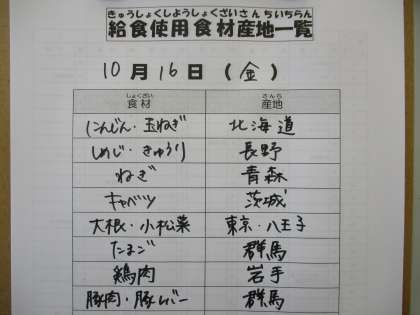 きゅうしょくしようしょくざいさんちいちらん
給食使用食材産地一覧
10月16日（金）
しょくざい さんち
食材 産地
にんじん・玉ねぎ 北海道
しめじ・きゅうり 長野
ねぎ 青森
キャベツ 茨城
大根・小松菜 東京・八王子
たまご 群馬
鶏肉 岩手
豚肉・豚レバー 群馬